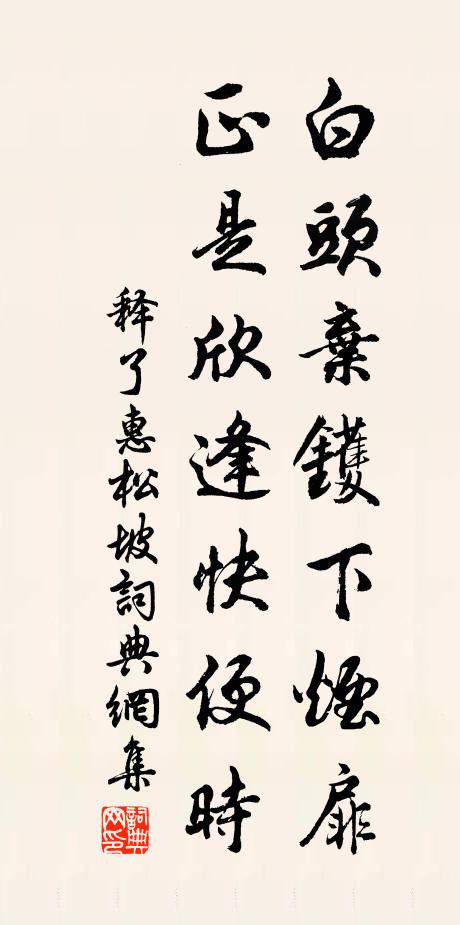 白頭棄钁下煙扉
正是欣逢快便時
释了惠松坡詞典網集
詞典網印